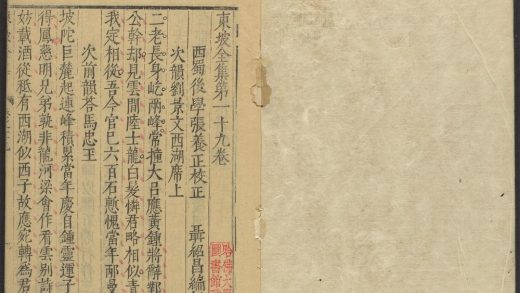 東坡全集第一十九卷
西蜀後學張養正校正　聶紹昌編
次韻劉景文西湖席上
二老長身屹兩峰常撞大呂應黃鍾將辭鄴
公幹却見雲間陸士龍白髮憐君略相似青
我定相從吾今官已六百石慙愧當年邴曼
次前韻答馬忠玉
坡陀巨麓起連峰積累當年慶自鍾靈運子
得鳳慈明兄弟孰非龍河梁會作看雲別詩
妨載酒從祗有西湖似西子故應宛轉為君
哈佛大
圖書館